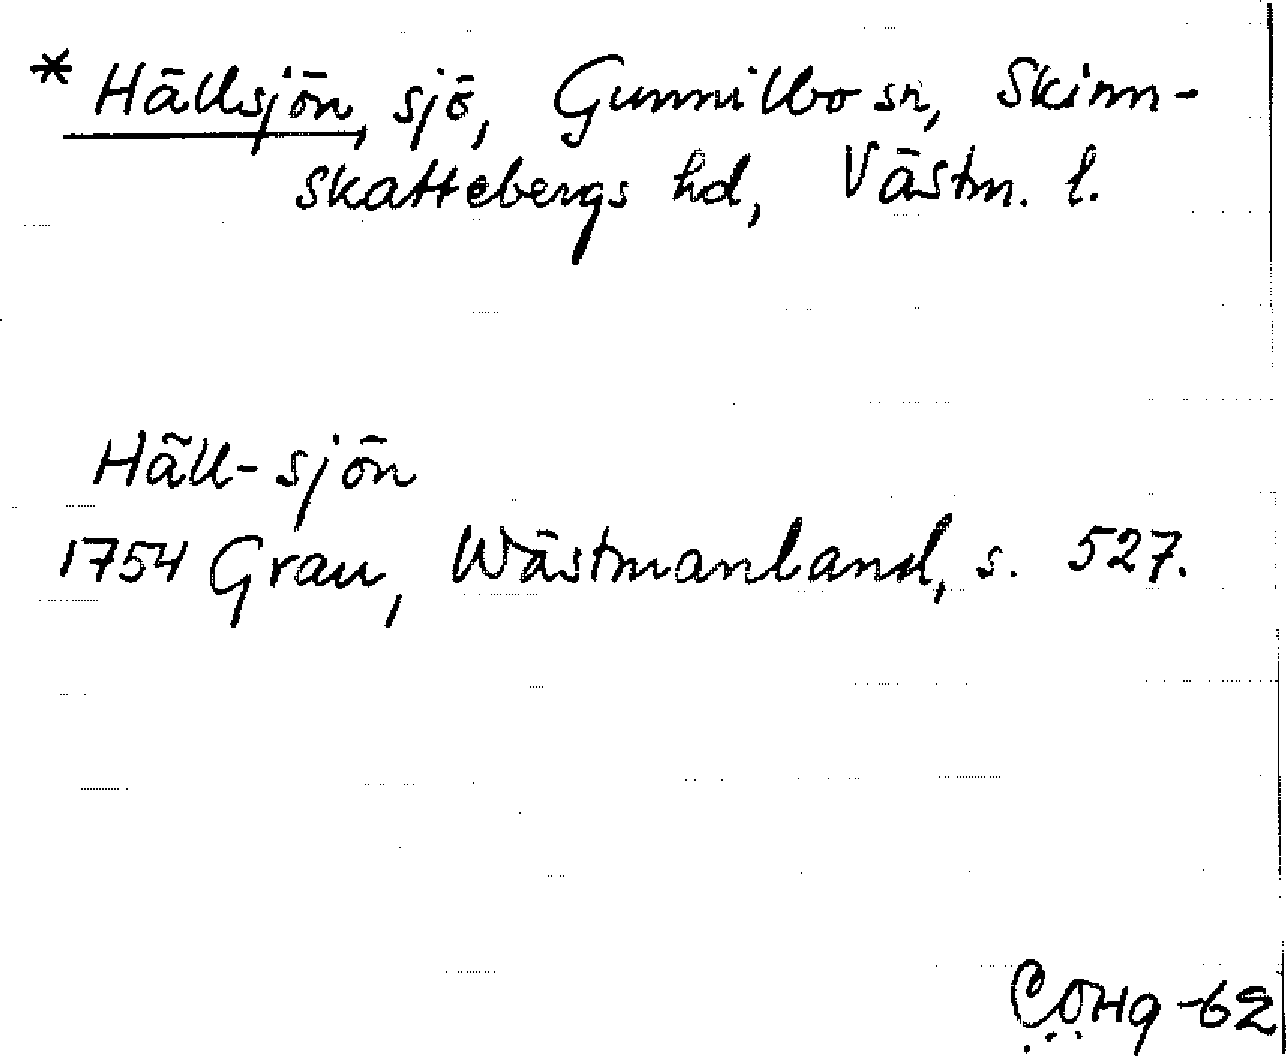 * Hällsjön, sjö, Gunnilbo sn, Skinn-
skattebergs hd, Västm. l.
Häll-sjön
1754 Grau, Wästmanland, s. 527.
CÖHg -62